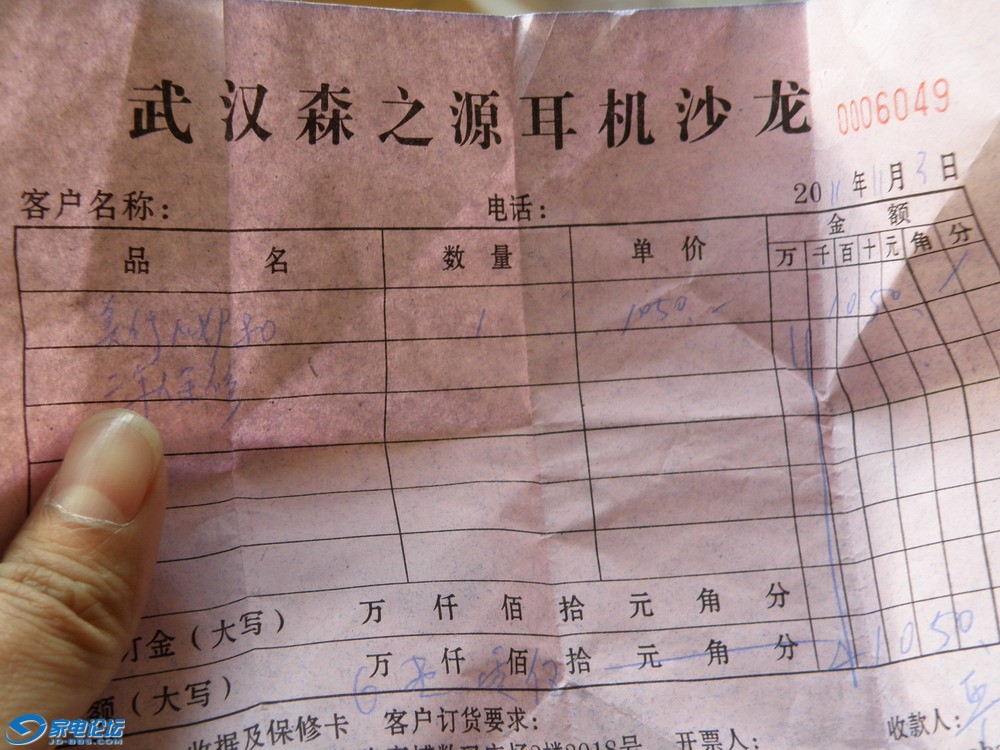 武汉森之源耳机沙龙
0006049
客户名称：
电话：
2011年11月3日
品名 数量 单价 金额
万 千 百 十 元 角 分
1 1050.- 1050
订金（大写） 万 仟 佰 拾 元 角 分
额（大写） 万 仟 佰 拾 元 角 分
1050
收据及保修卡 客户订货要求：
开票人：
收款人：
家电论坛
JD-BBS.COM